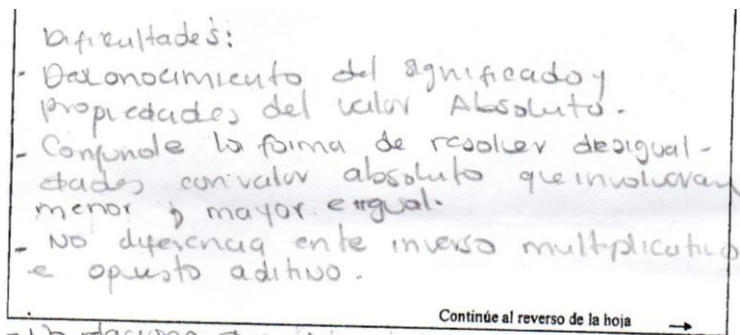 Dificultades:
- Desconocimiento del significado y
propiedades del valor Absoluto.
- Confunde la forma de resolver desigual-
dades con valor absoluto que involucran
menor y mayor e igual.
- No diferencia ente inverso multiplicativo
e opuesto aditivo.
Continúe al reverso de la hoja →